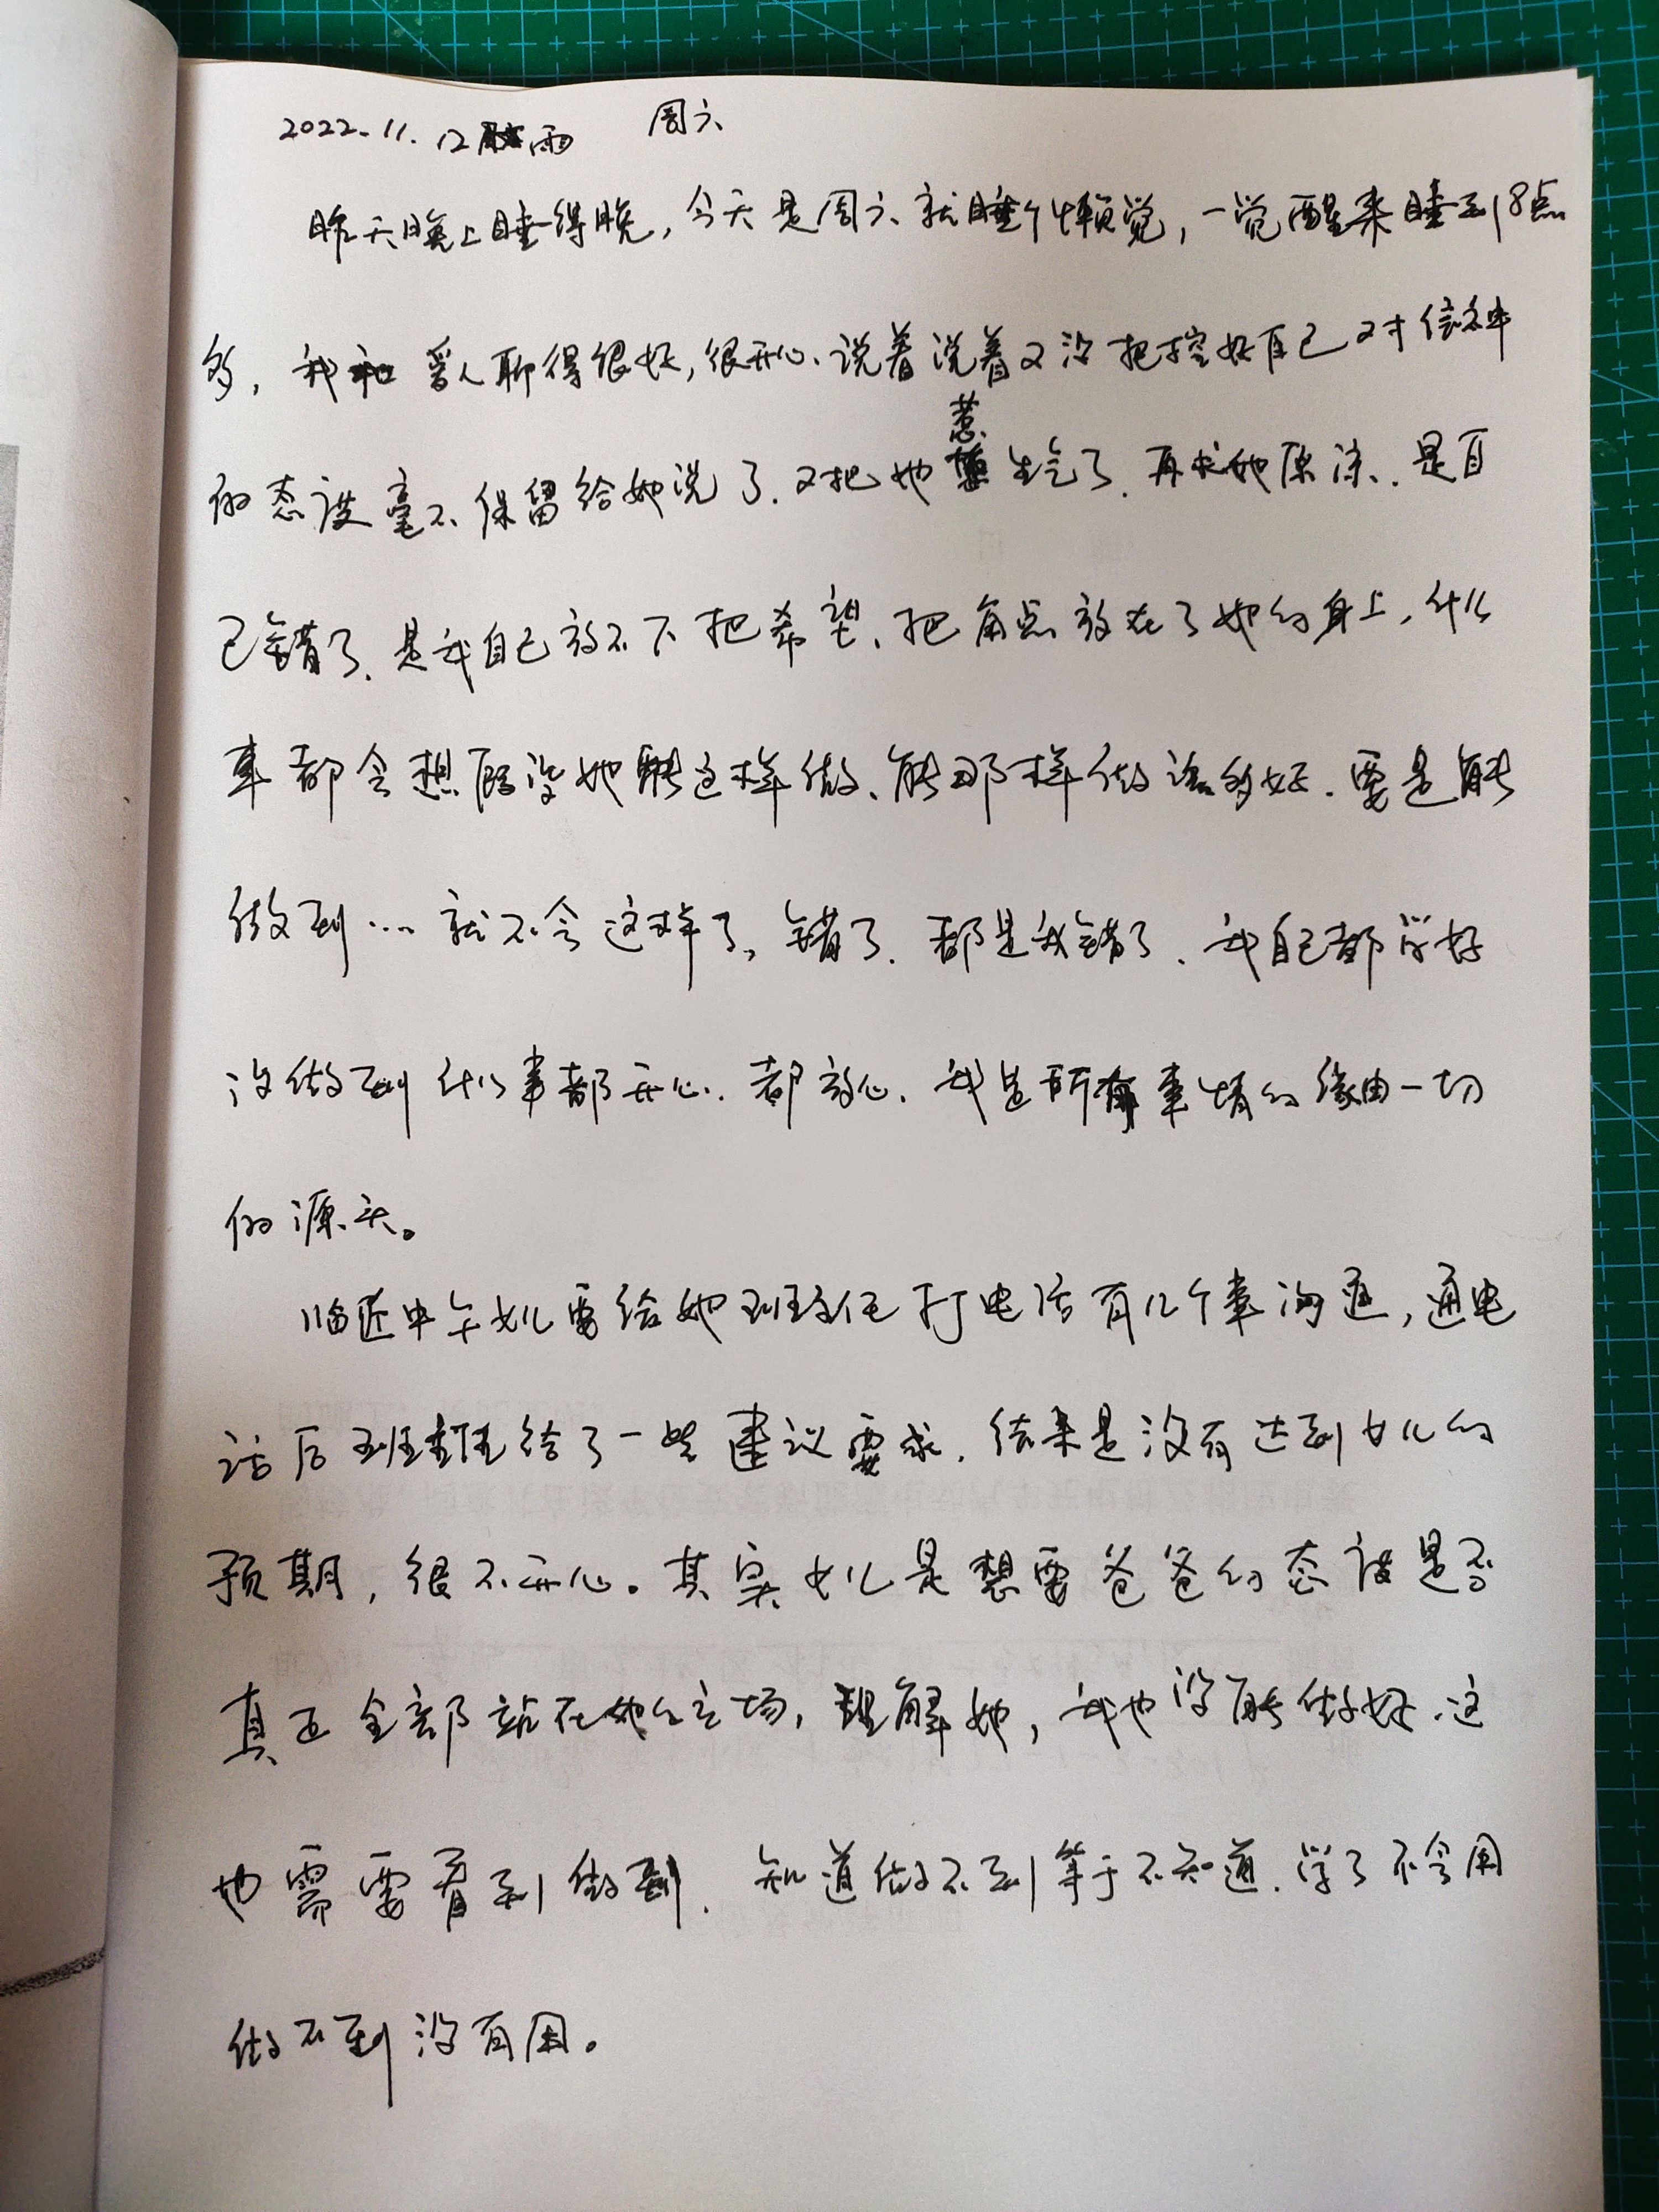 2022.11.12 雨 周六
昨天晚上睡得晚，今天是周六就睡个懒觉，一觉醒来睡到8点
多，我和爱人聊得很好，很开心、说着说着又没把控好自己对
的态度毫不保留给她说了、又把她惹生气了、再求她原谅、是自
己错了、是我自己放不下把希望、把焦点放在了她的身上，什么
事都会想假设她能这样做、能那样做该多好、要是能
做到…就不会这样了、错了、都是我错了、我自己都学好
没做到什么事都开心、都放心、我是所有事情的缘由一切
的源头。
临近中午女儿要给她班主任打电话有几个事沟通，通电
话后班主任给了一些建议要求、结果是没有达到女儿的
预期，很不开心。其实女儿是想要爸爸的态度是否
真正全部站在她的立场，理解她，我也没能做好、这
也需要看到做到、知道做不到等于不知道、学了不会用
做不到没有用。